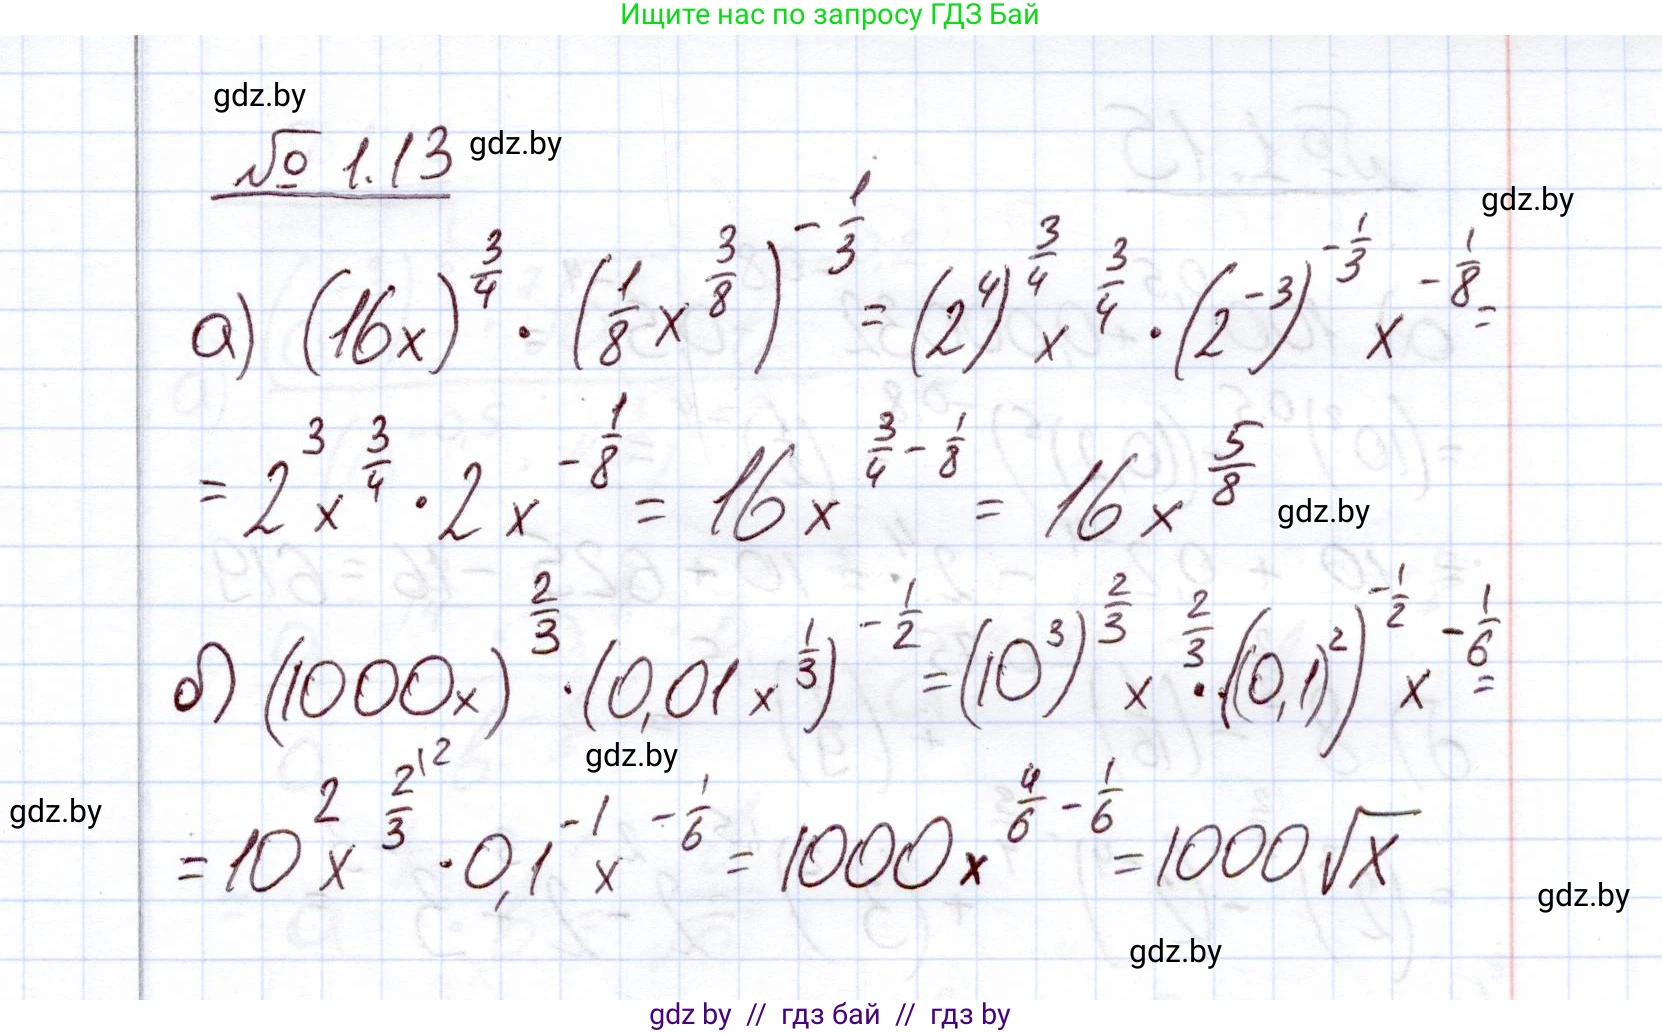 Ищите нас по запросу ГДЗ Бай
gdz.by
№ 1.13 gdz.by
gdz.by
а) (16x)^(3/4) · (1/8 x^(3/8))^(-1/3) = (2^4)^(3/4) x^(3/4) · (2^(-3))^(-1/3) x^(-1/8) =
= 2^3 x^(3/4) · 2 x^(-1/8) = 16 x^(3/4 - 1/8) = 16 x^(5/8)
gdz.by
б) (1000x)^(2/3) · (0,01 x^(1/3))^(-1/2) = (10^3)^(2/3) x^(2/3) · ((0,1)^2)^(-1/2) x^(-1/6) =
gdz.by
gdz.by
= 10^2 x^(2/3 \2) · 0,1^(-1) x^(-1/6) = 1000 x^(4/6 - 1/6) = 1000 √x
gdz.by
gdz.by
gdz by // гдз бай // гдз by